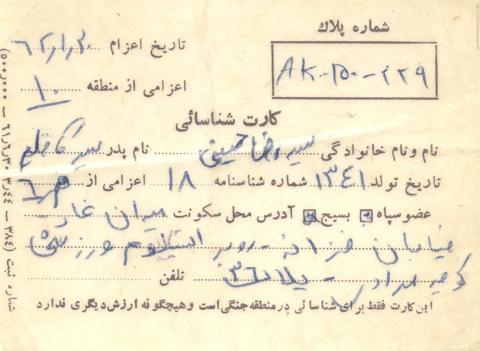 شماره پلاک
AK-۱۵۰-۲۲۹
تاریخ اعزام ۶۲/۱/۲۰
اعزامی از منطقه ۱۰
کارت شناسائی
نام و نام خانوادگی سید رضا حسینی نام پدر سید کاظم
تاریخ تولد ۱۳۴۱ شماره شناسنامه ۱۸ اعزامی از
عضو سپاه بسیج آدرس محل سکونت میدان غار
خیابان خزانه روبروی استادیوم ورزشی
کوچه پلاک ۳۶ تلفن
این کارت فقط برای شناسائی در منطقه جنگی است و هیچگونه ارزش دیگری ندارد
شماره ثبت (۳۸۴ – ۳۰۴۴ – ۶۱/۶/۳۰ – ۵۰۰،۰۰۰)